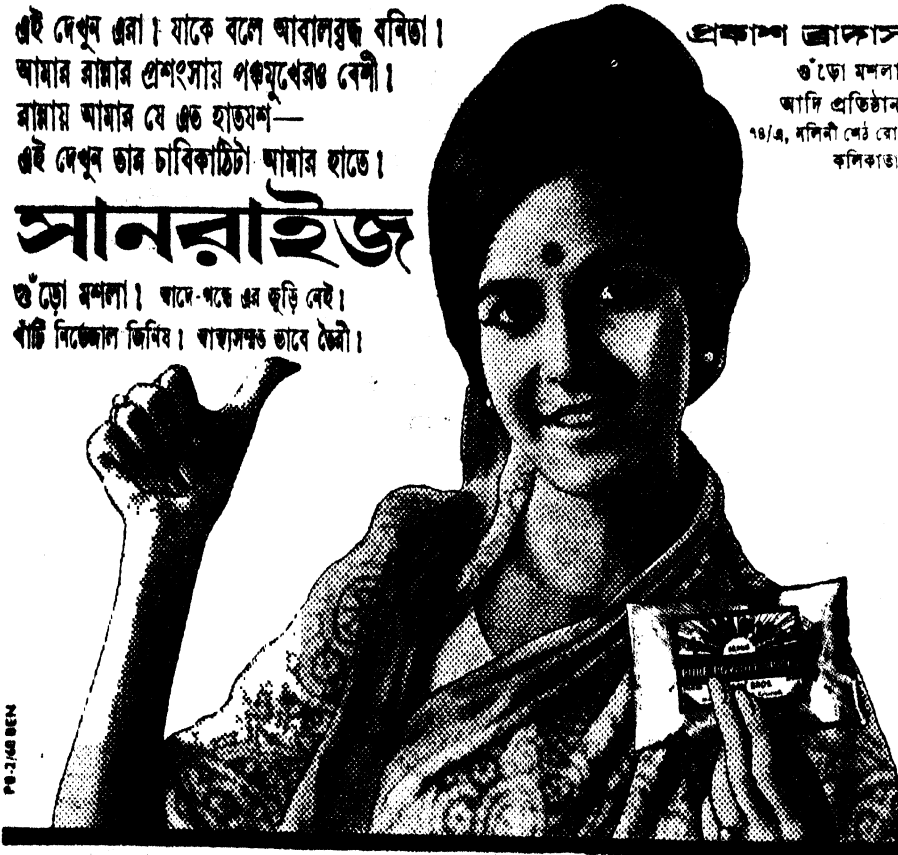 এই দেখুন এরা! যাকে বলে আবালবৃদ্ধ বনিতা!
আমার রান্নার প্রশংসায় পঞ্চমুখেরও বেশী!
রান্নায় আমার যে এত হাতযশ—
এই দেখুন তার চাবিকাঠিটা আমার হাতে!
সানরাইজ
গুঁড়ো মশলা! স্বাদে-গন্ধে এর জুড়ি নেই!
খাঁটি নির্ভেজাল জিনিষ! স্বাস্থ্যসম্মত ভাবে তৈরী!
প্রকাশ ব্রাদাস
গুঁড়ো মশলা
আদি প্রতিষ্ঠান
৭৪/এ, নলিনী শেঠ রো
কলিকাতা
BROS.
PB-2/68 BEN